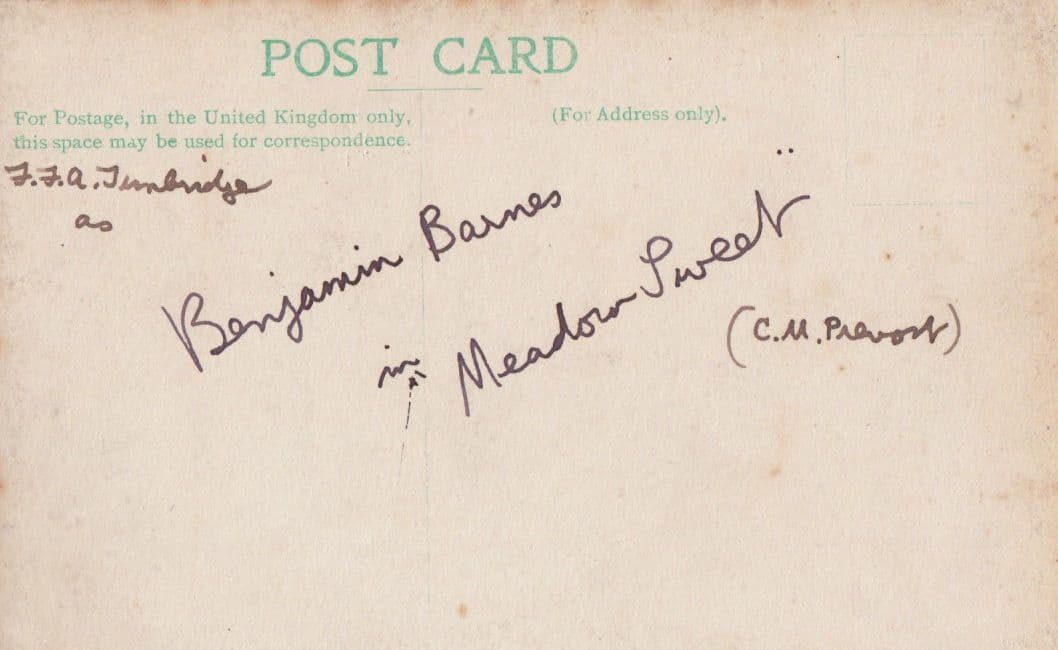 POST CARD
For Postage, in the United Kingdom only,
this space may be used for correspondence.
(For Address only).
F.F.A. Timbridge
as
Benjamin Barnes
in "Meadow Sweet"
(C.M. Prevost)